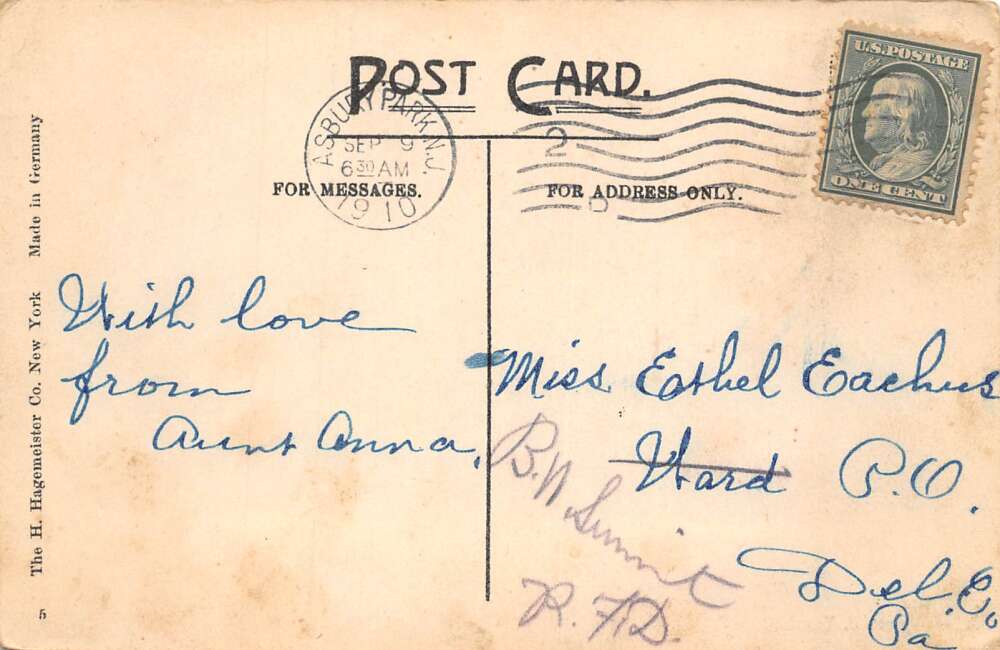 POST CARD.
ASBURY PARK, N.J.
SEP 9
6 30 AM
1910
2
U.S. POSTAGE
ONE CENT
FOR MESSAGES.
FOR ADDRESS ONLY.
With love
from
Aunt Anna,
Miss Ethel Eachus
Ward P.O.
Del. Co.
Pa
B.W. Summit
R.F.D.
The H. Hagemeister Co. New York Made in Germany
5